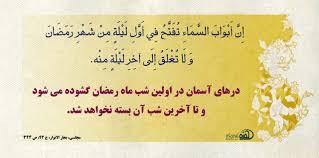 إِنَّ أَبْوَابَ السَّمَاءِ تُفَتَّحُ فِي أَوَّلِ لَيْلَةٍ مِنْ شَهْرِ رَمَضَانَ
وَ لَا تُغْلَقُ إِلَى آخِرِ لَيْلَةٍ مِنْهُ.
درهای آسمان در اولین شب ماه رمضان گشوده می شود
و تا آخرین شب آن بسته نخواهد شد.
مجلسی، بحار الانوار، ج ۹۳، ص ۳۴۴